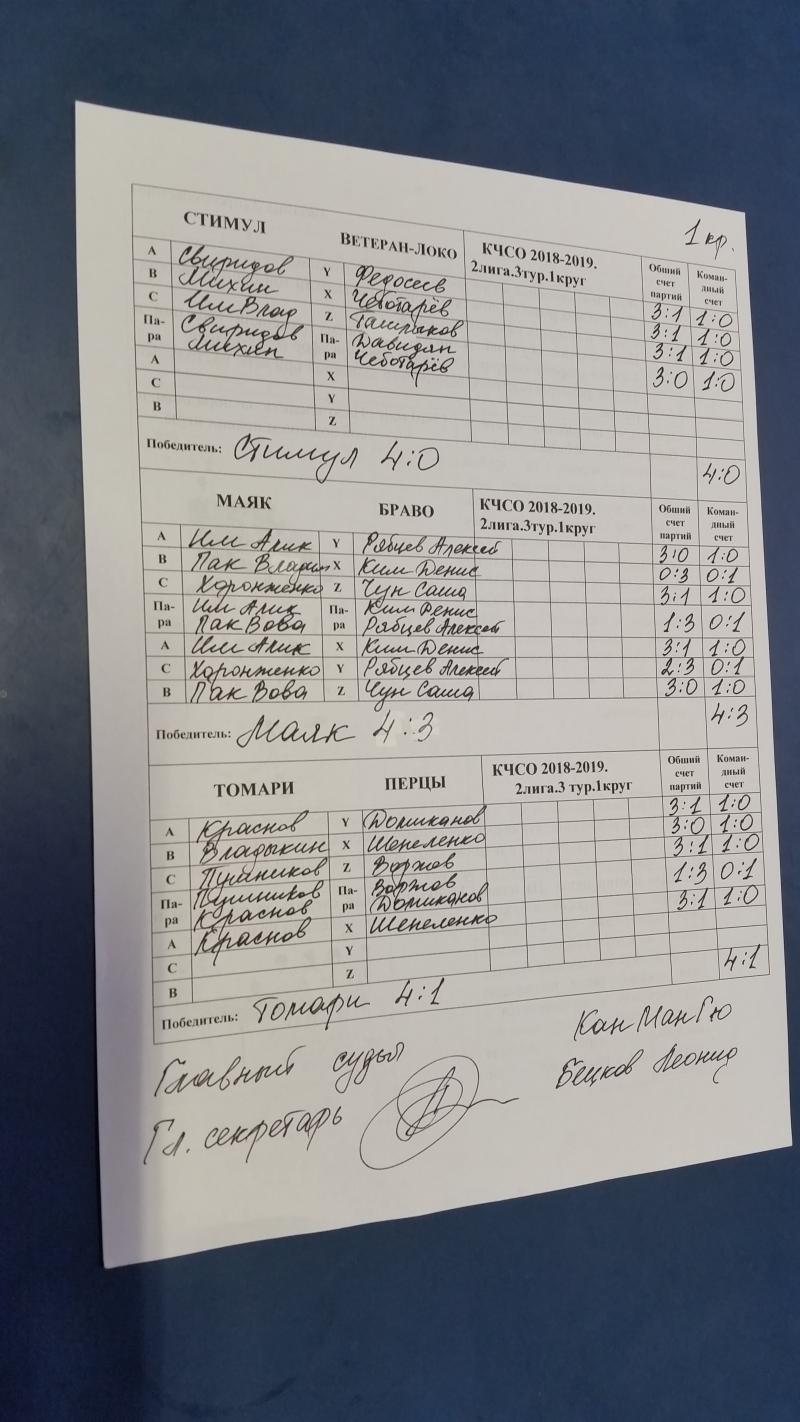 1 кр.
СТИМУЛ ВЕТЕРАН-ЛОКО КЧСО 2018-2019. 2лига.3тур.1круг Общий счет партий Коман-дный счет
A Свиридов Y Федосеев 3:1 1:0
B Михин X Чеботарёв 3:1 1:0
C Им Влад Z 3:1 1:0
Па-ра Свиридов Михин Па-ра Давидян Чеботарёв 3:0 1:0
A X
C Y
B Z
Победитель: Стимул 4:0 4:0
МАЯК БРАВО КЧСО 2018-2019. 2лига.3тур.1круг Общий счет партий Коман-дный счет
A Им Алик Y Рябцев Алексей 3:0 1:0
B Пак Владим X Ким Денис 0:3 0:1
C Хоронженко Z Чун Саша 3:1 1:0
Па-ра Им Алик Пак Вова Па-ра Ким Денис Рябцев Алексей 1:3 0:1
A Им Алик X Ким Денис 3:1 1:0
C Хоронженко Y Рябцев Алексей 2:3 0:1
B Пак Вова Z Чун Саша 3:0 1:0
Победитель: Маяк 4:3 4:3
ТОМАРИ ПЕРЦЫ КЧСО 2018-2019. 2лига.3 тур.1круг Общий счет партий Коман-дный счет
A Краснов Y Домиканов 3:1 1:0
B Владыкин X Шепеленко 3:0 1:0
C Пушников Z 3:1 1:0
Па-ра Пушников Краснов Па-ра Домиканов 1:3 0:1
A Краснов X Шепеленко 3:1 1:0
C Y
B Z
Победитель: Томари 4:1 4:1
Главный судья Кан Ман Гю
Гл. секретарь Бецков Леонид